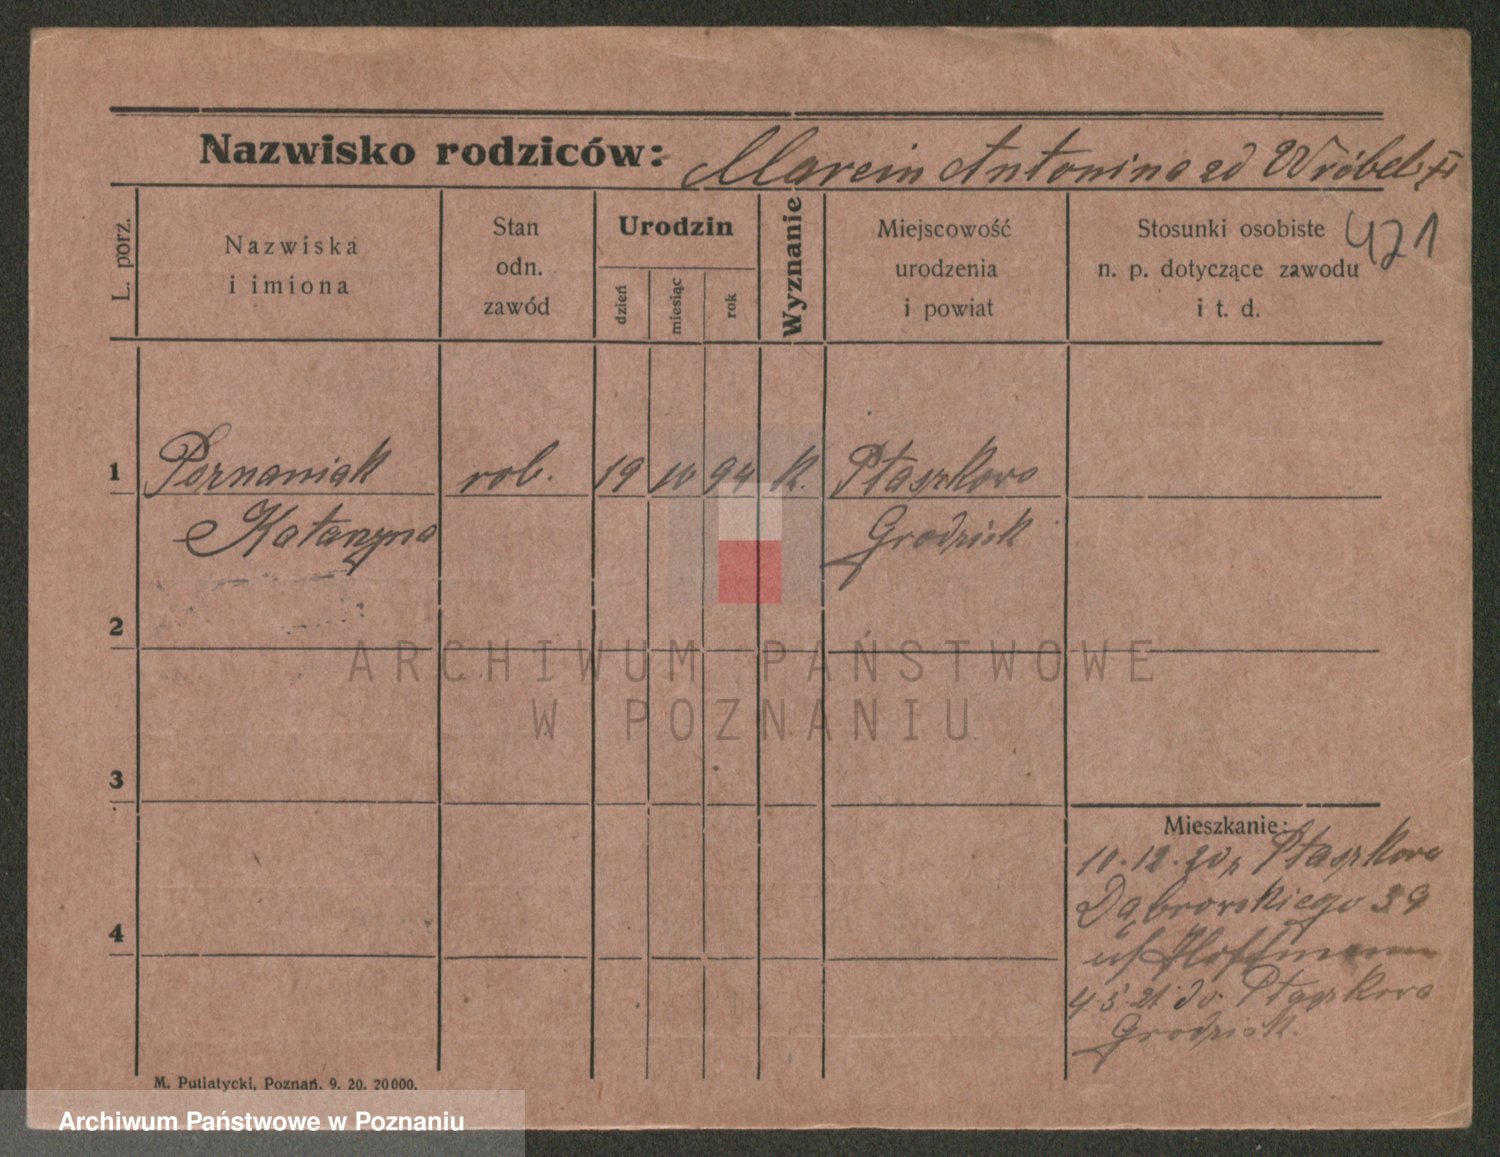 Nazwisko rodziców: Marcin Antonina zd Wróbel
L. porz.
Nazwiska
i imiona
Stan
odn.
zawód
Urodzin
dzień
miesiąc
rok
Wyznanie
Miejscowość
urodzenia
i powiat
Stosunki osobiste
n. p. dotyczące zawodu
i t. d.
421
1 Poznaniak rob. 19 10 94 k. Ptaszkowo
Katarzyna Grodzisk
2
ARCHIWUM PAŃSTWOWE
W POZNANIU
3
Mieszkanie:
10.12.20 z Ptaszkowa
Dąbrowskiego 39
4
u Hoffmann
4 5 21 do Ptaszkowa
Grodzisk.
M. Putiatycki, Poznań. 9. 20. 20000.
Archiwum Państwowe w Poznaniu